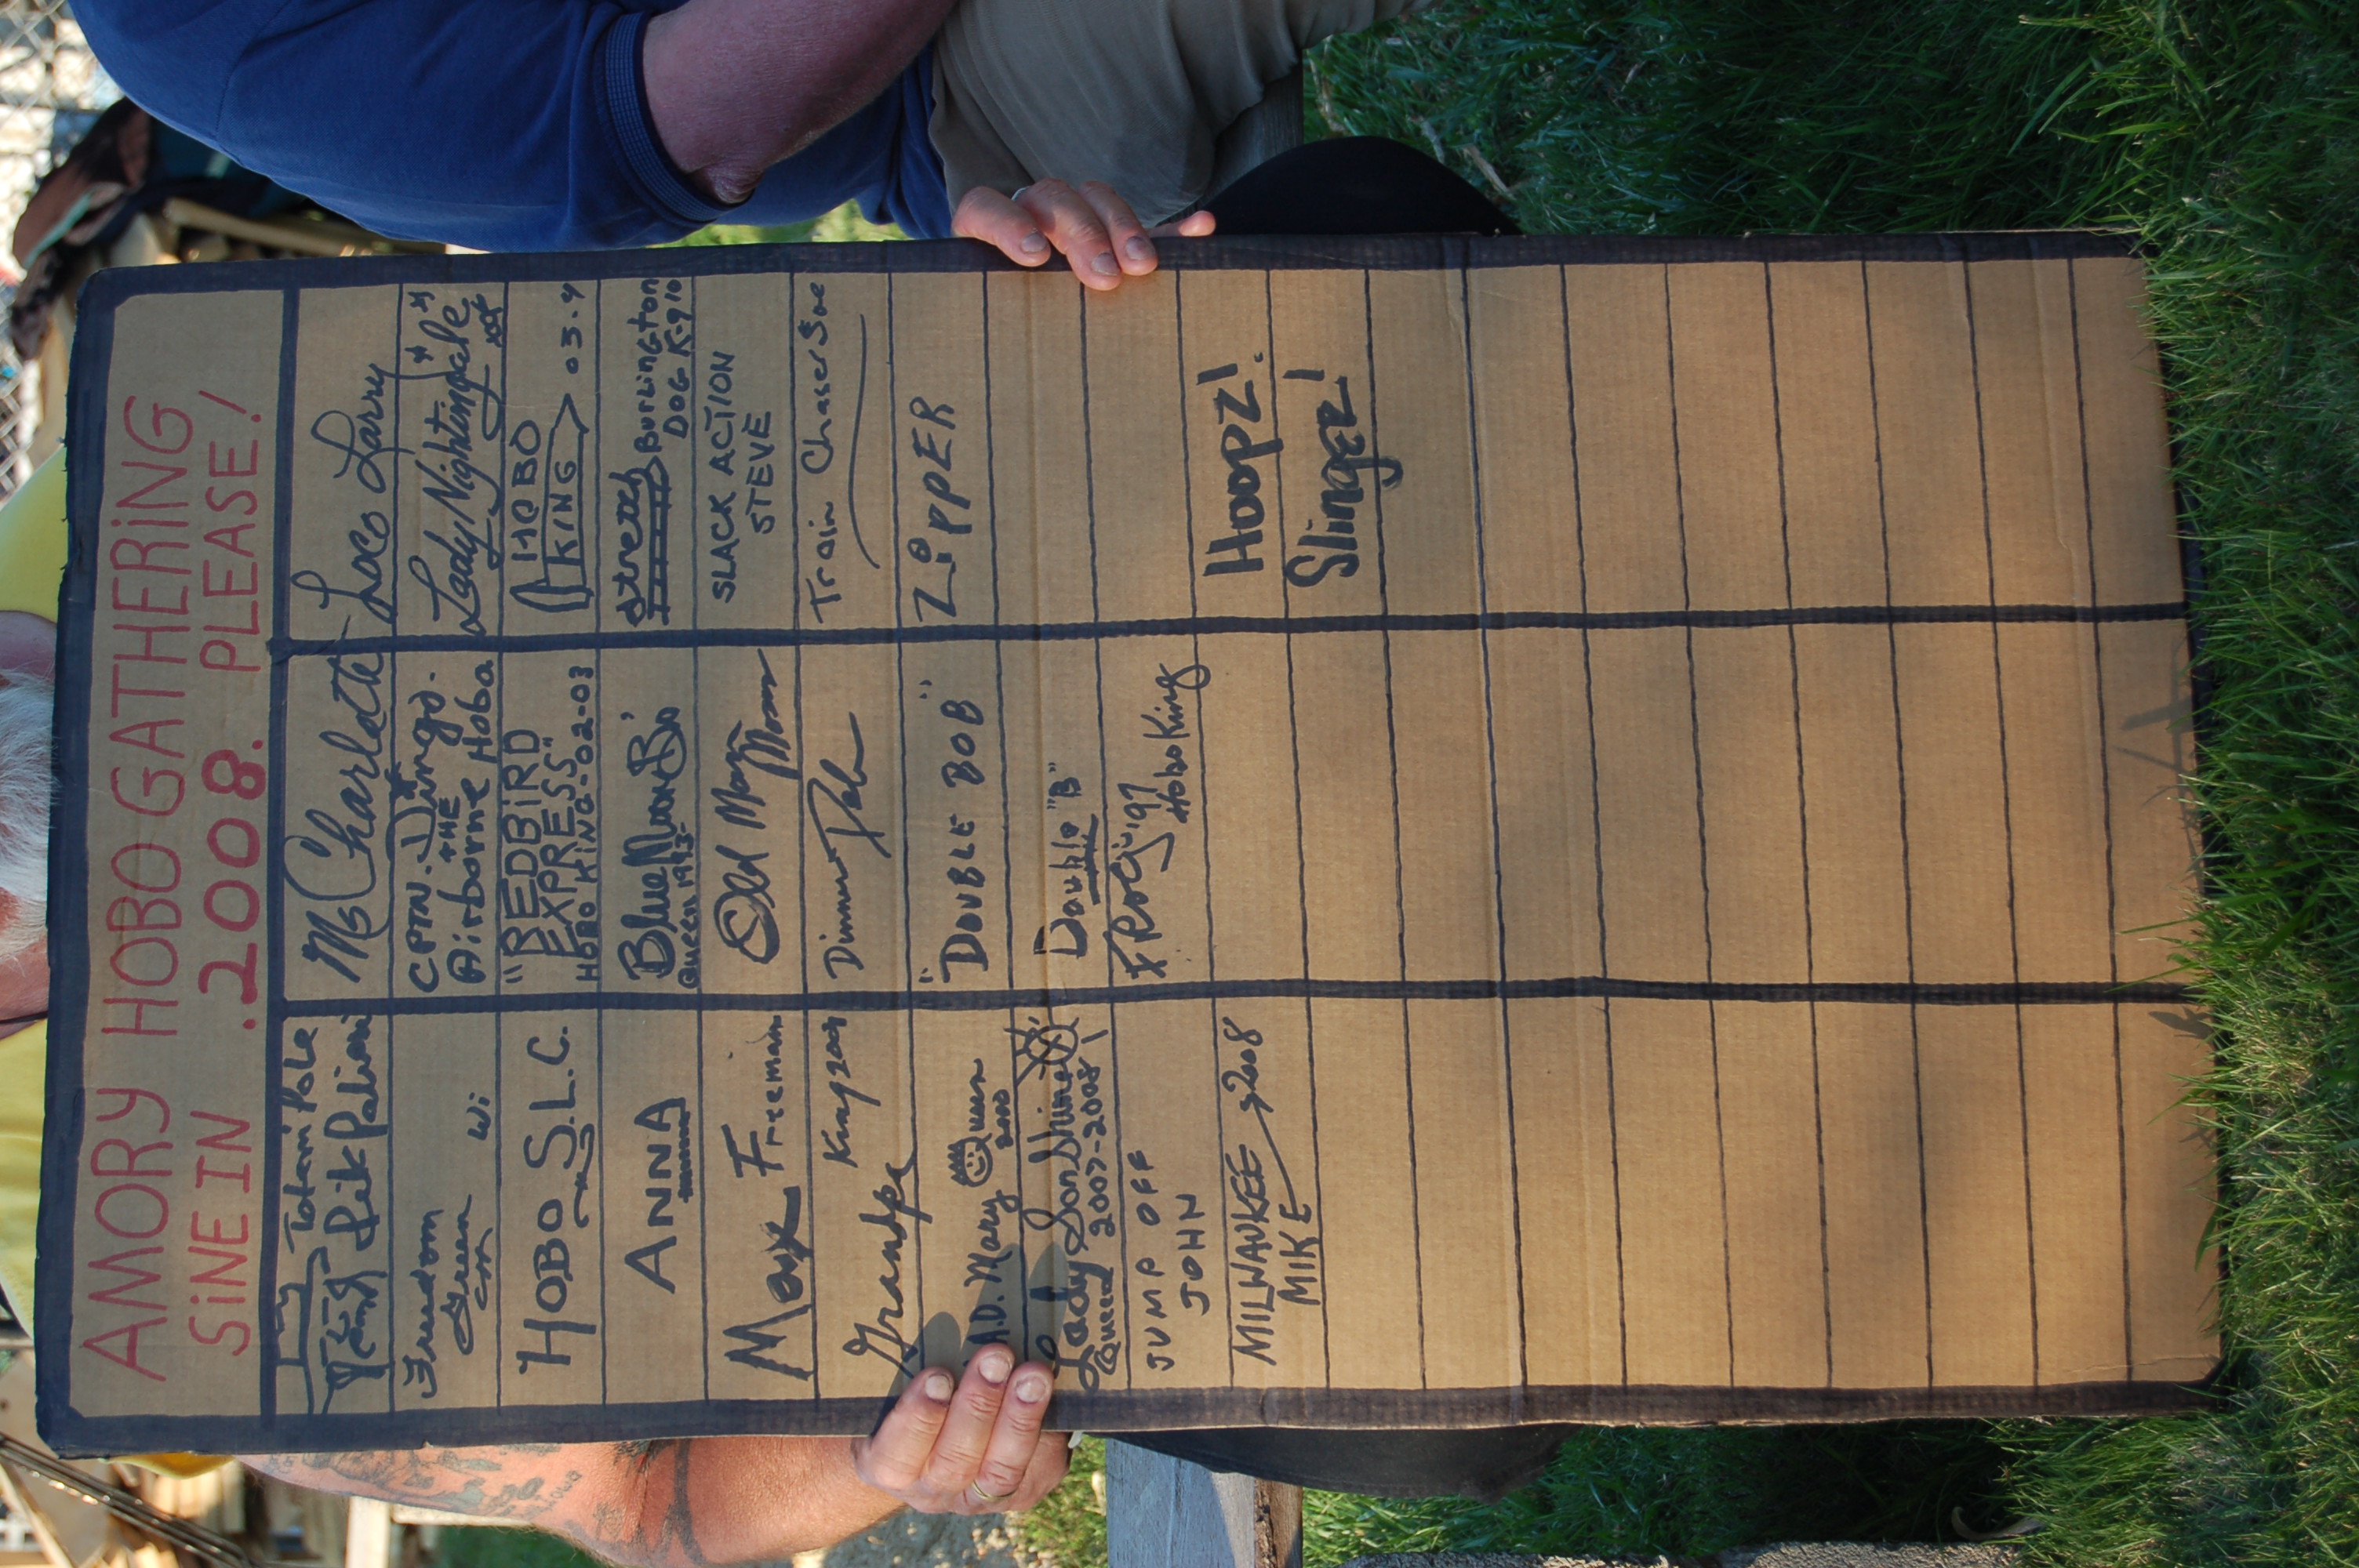 AMORY HOBO GATHERING
SiNE IN .2008. PLEASE!
Totem Pole
Freedom
Green
WI
HOBO S.L.C.
ANNA
Max Freeman
Grandpa King 2004
M.A.D. Mary Queen
2000
Lady SonShine
Queen 2007-2008
JUMP OFF
JOHN
MILWAUKEE 2008
MIKE
Ms Charlotte
CPTN. Dingo.
THE
Airborne Hobo
"REDBIRD
EXPRESS"
HOBO KING-02-03
Blue Moon Bo
Queen 1993-
Old Man Moon
Dinner
"DOUBLE BOB"
Double "B"
FROG '97
Hobo King
Loco Larry
Lady Nightingale
HOBO
KING 03-4
Stretch Burlington
DOG K-9 10
SLACK ACTION
STEVE
Train Chaser Sue
ZiPPER
HOOPZ!
Slinger!